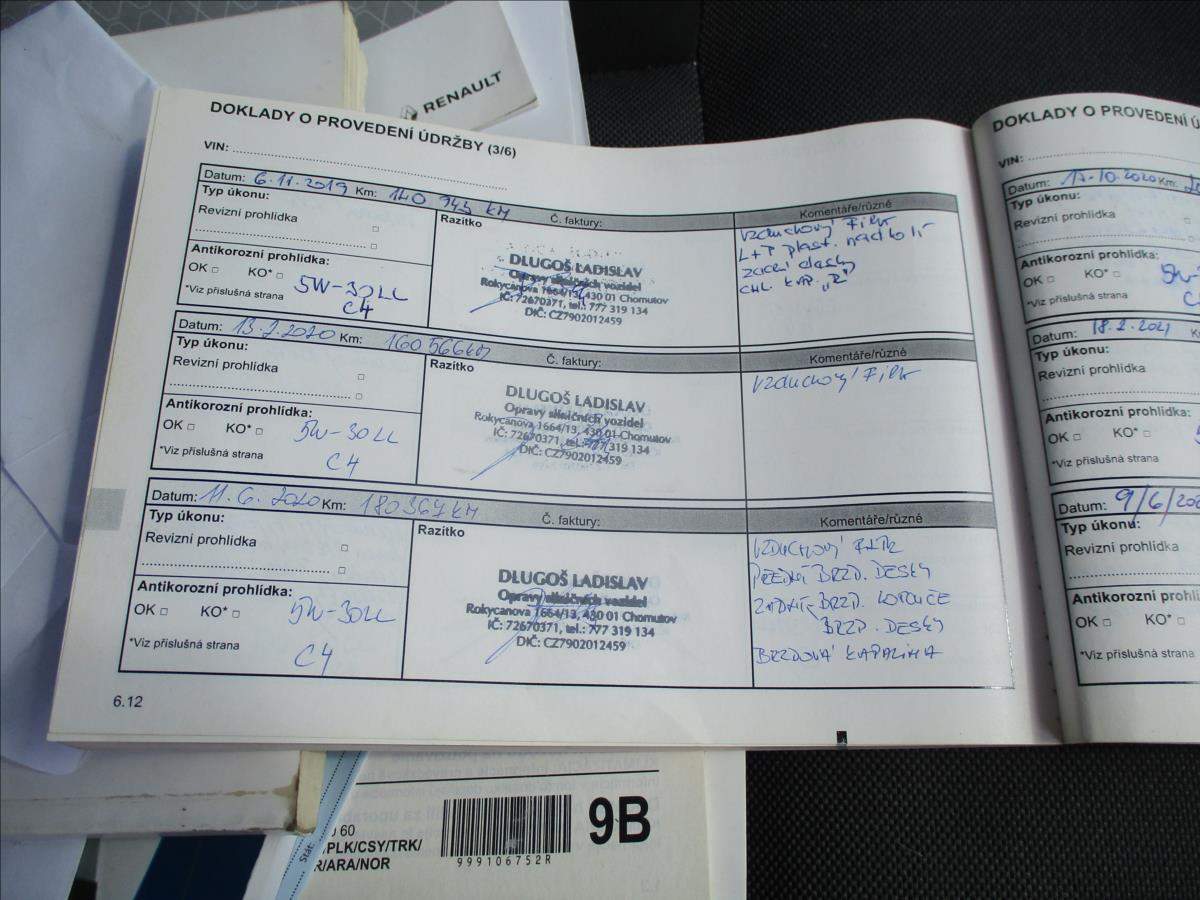 RENAULT
DOKLADY O PROVEDENÍ ÚDRŽBY (3/6)
VIN:
Datum: 6.11.2019 Km: 140 945 KM
Č. faktury:
Komentáře/různé
Typ úkonu:
Revizní prohlídka
Antikorozní prohlídka:
OK KO*
5W-30LL
*Viz příslušná strana
C4
Razítko
DLUGOŠ LADISLAV
Opravy silničních vozidel
Rokycanova 1664/13, 430 01 Chomutov
IČ: 72670371, tel.: 777 319 134
DIČ: CZ7902012459
Vzduchový filtr
L+P plast. nadkolí
zadní desky
Datum: 13.2.2020 Km: 160 566 KM
Č. faktury:
Komentáře/různé
Typ úkonu:
Revizní prohlídka
Antikorozní prohlídka:
OK KO*
5W-30LL
*Viz příslušná strana
C4
Razítko
DLUGOŠ LADISLAV
Opravy silničních vozidel
Rokycanova 1664/13, 430 01 Chomutov
IČ: 72670371, tel.: 777 319 134
DIČ: CZ7902012459
Vzduchový filtr
Datum: 11.6.2020 Km: 180367 KM
Č. faktury:
Komentáře/různé
Typ úkonu:
Revizní prohlídka
Antikorozní prohlídka:
OK KO*
5W-30LL
*Viz příslušná strana
C4
Razítko
DLUGOŠ LADISLAV
Opravy silničních vozidel
Rokycanova 1664/13, 430 01 Chomutov
IČ: 72670371, tel.: 777 319 134
DIČ: CZ7902012459
VZDUCHOVÝ FILTR
PŘEDNÍ BRZD. DESKY
ZADNÍ - BRZD. KOTOUČE
BRZD. DESKY
BRZDOVÁ KAPALINA
6.12
DOKLADY O PROVEDENÍ Ú
VIN:
Datum: 17.10.2020 Km:
Typ úkonu:
Revizní prohlídka
Antikorozní prohlídka:
OK KO*
*Viz příslušná strana
Datum: 18.2.2021
Typ úkonu:
Revizní prohlídka
Antikorozní prohlídka:
OK KO*
*Viz příslušná strana
Datum: 9/6/202
Typ úkonu:
Revizní prohlídka
Antikorozní prohlí
OK KO*
*Viz příslušná strana
60
/PLK/CSY/TRK/
R/ARA/NOR
Stát:
999106752R
9B